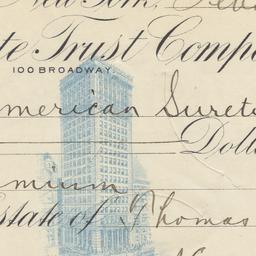 New York, Feb
te Trust Compa
100 BROADWAY.
merican Suret
Dolla
mium
state of Thomas